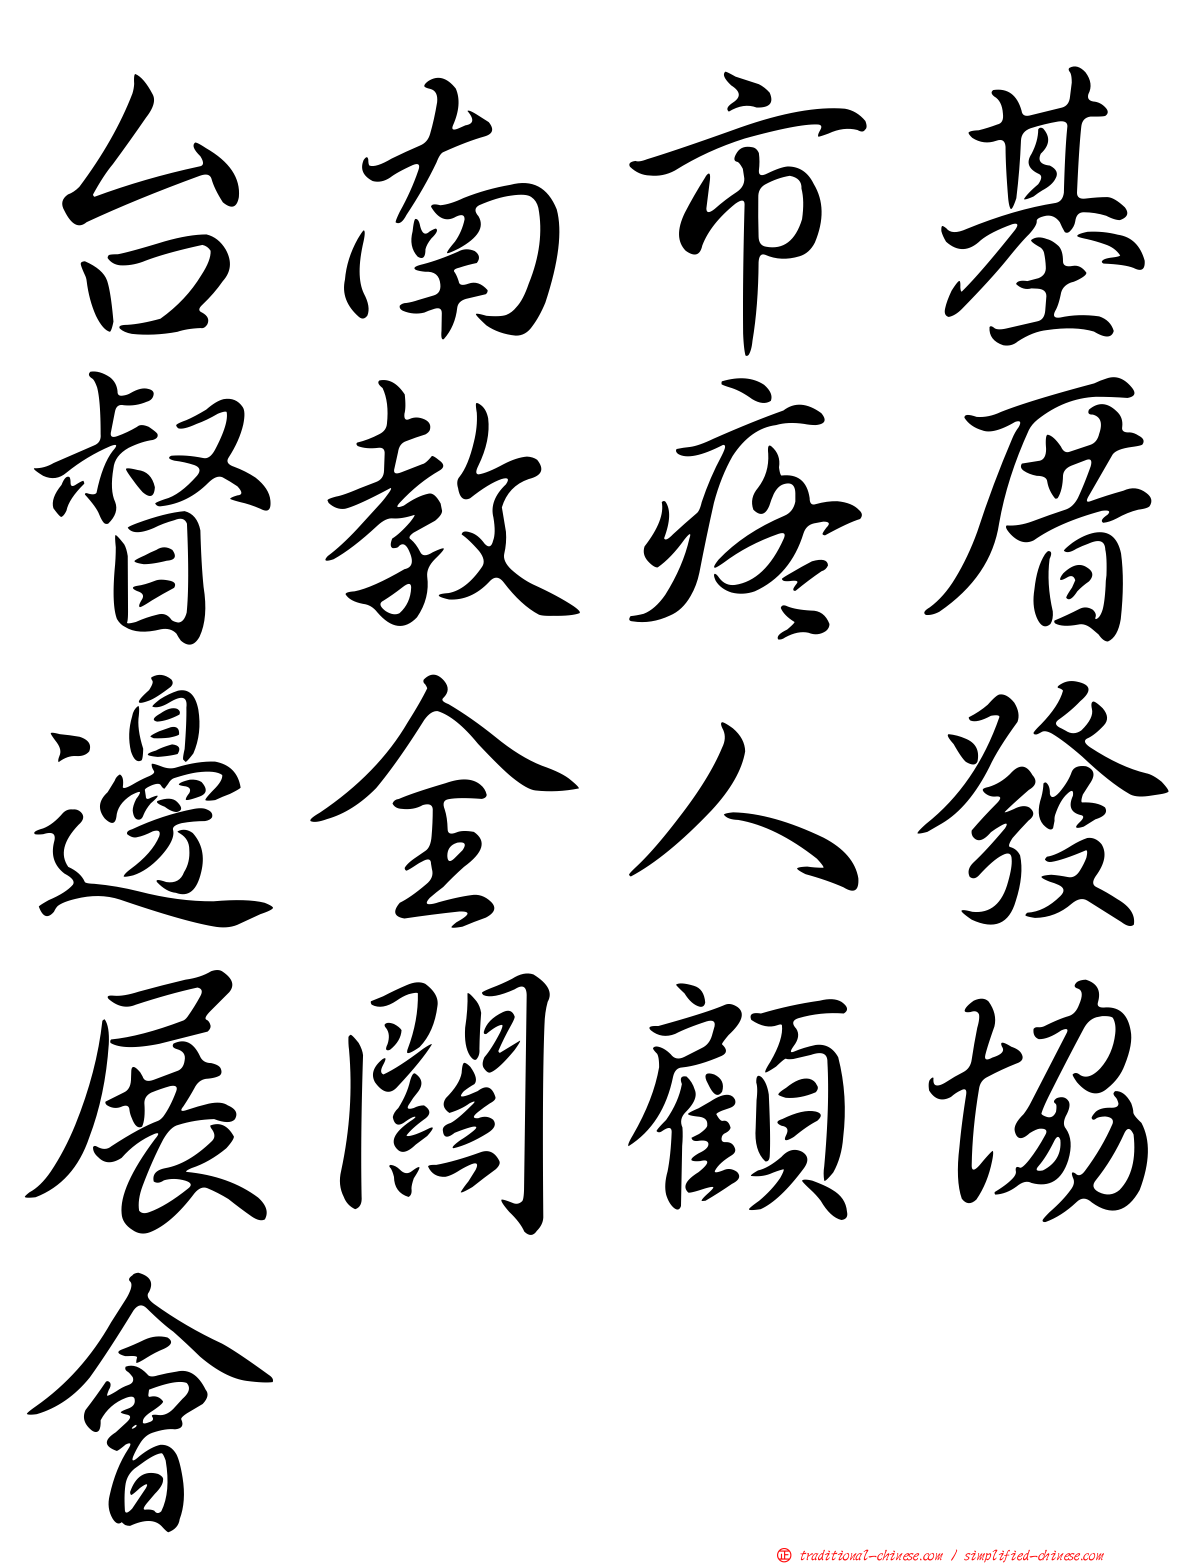 台南市基
督教疼厝
邊全人發
展關顧協
會
正 traditional-chinese.com / simplified-chinese.com